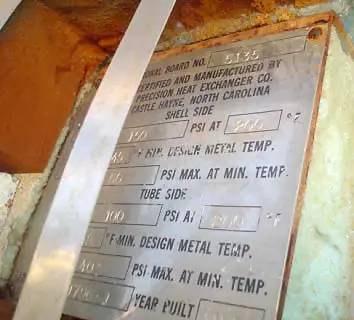 ONAL BOARD NO. 5135
ERTIFIED AND MANUFACTURED BY
PRECISION HEAT EXCHANGER CO.
CASTLE HAYNE, NORTH CAROLINA
SHELL SIDE
PSI AT 200 °F
°F MIN. DESIGN METAL TEMP.
PSI MAX. AT MIN. TEMP.
TUBE SIDE
100 PSI AT 200 °F
°F MIN. DESIGN METAL TEMP.
PSI MAX. AT MIN. TEMP.
YEAR BUILT